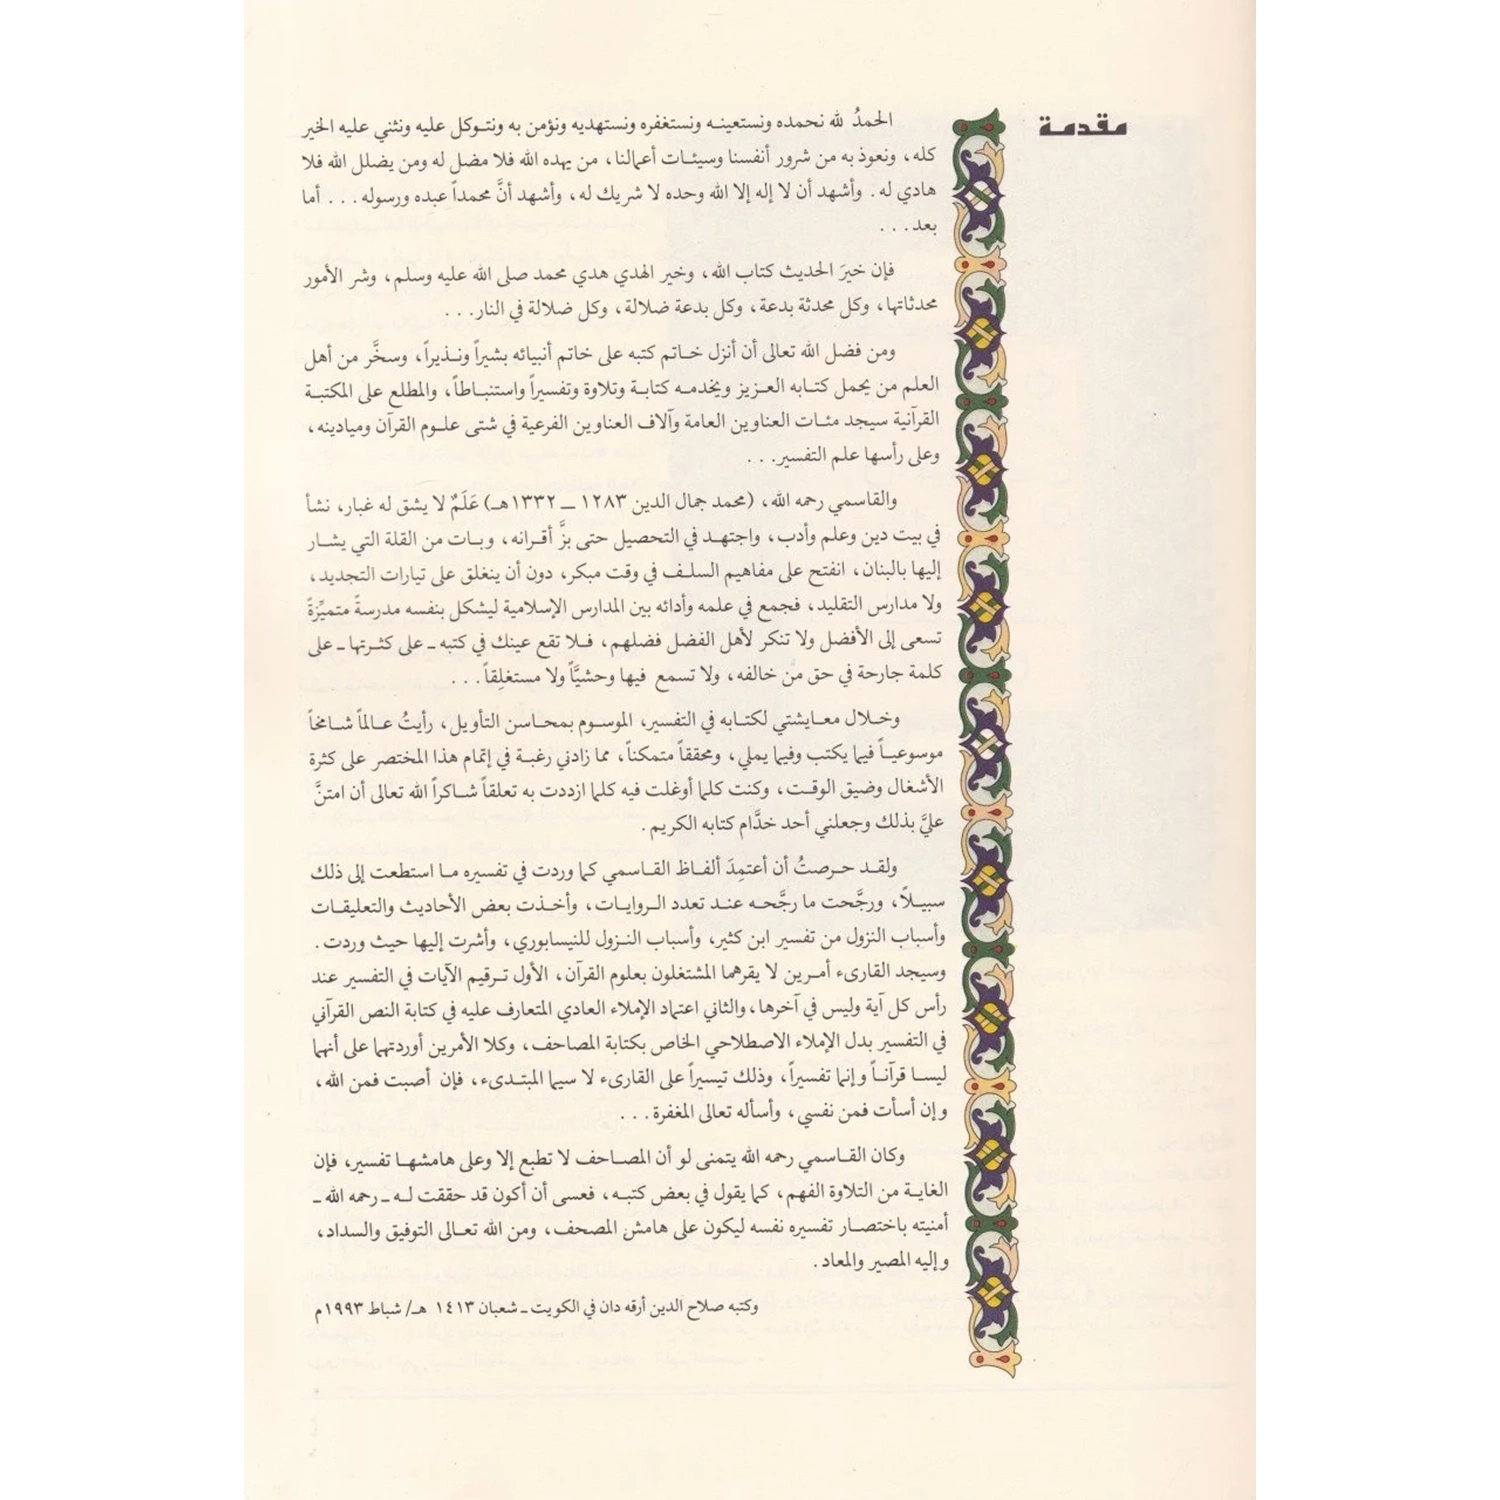 مقدمة
الحمدُ لله نحمده ونستعينه ونستغفره ونستهديه ونؤمن به ونتوكل عليه ونثني عليه الخير
كله، ونعوذ به من شرور أنفسنا وسيئات أعمالنا، من يهده الله فلا مضل له ومن يضلل الله فلا
هادي له. وأشهد أن لا إله إلا الله وحده لا شريك له، وأشهد أنَّ محمداً عبده ورسوله... أما
بعد...
فإن خيرَ الحديث كتاب الله، وخير الهدي هدي محمد صلى الله عليه وسلم، وشر الأمور
محدثاتها، وكل محدثة بدعة، وكل بدعة ضلالة، وكل ضلالة في النار...
ومن فضل الله تعالى أن أنزل خاتم كتبه على خاتم أنبيائه بشيراً ونذيراً، وسخَّر من أهل
العلم من يحمل كتابه العزيز ويخدمه كتابة وتلاوة وتفسيراً واستنباطاً، والمطلع على المكتبة
القرآنية سيجد مئات العناوين العامة وآلاف العناوين الفرعية في شتى علوم القرآن وميادينه،
وعلى رأسها علم التفسير...
والقاسمي رحمه الله، (محمد جمال الدين ١٢٨٣ ــ ١٣٣٢هـ) عَلَمٌ لا يشق له غبار، نشأ
في بيت دين وعلم وأدب، واجتهد في التحصيل حتى بزَّ أقرانه، وبات من القلة التي يشار
إليها بالبنان، انفتح على مفاهيم السلف في وقت مبكر، دون أن ينغلق على تيارات التجديد،
ولا مدارس التقليد، فجمع في علمه وأدائه بين المدارس الإسلامية ليشكل بنفسه مدرسةً متميِّزةً
تسعى إلى الأفضل ولا تنكر لأهل الفضل فضلهم، فلا تقع عينك في كتبه ـ على كثرتها ـ على
كلمة جارحة في حق من خالفه، ولا تسمع فيها وحشيَّاً ولا مستغلِقاً...
وخلال معايشتي لكتابه في التفسير، الموسوم بمحاسن التأويل، رأيتُ عالماً شامخاً
موسوعياً فيما يكتب وفيما يملي، ومحققاً متمكناً، مما زادني رغبة في إتمام هذا المختصر على كثرة
الأشغال وضيق الوقت، وكنت كلما أوغلت فيه كلما ازددت به تعلقاً شاكراً الله تعالى أن امتنَّ
عليَّ بذلك وجعلني أحد خدَّام كتابه الكريم.
ولقد حرصتُ أن أعتمِدَ ألفاظ القاسمي كما وردت في تفسيره ما استطعت إلى ذلك
سبيلاً، ورجَّحت ما رجَّحه عند تعدد الروايات، وأخذت بعض الأحاديث والتعليقات
وأسباب النزول من تفسير ابن كثير، وأسباب النزول للنيسابوري، وأشرت إليها حيث وردت.
وسيجد القارىء أمرين لا يقرهما المشتغلون بعلوم القرآن، الأول ترقيم الآيات في التفسير عند
رأس كل آية وليس في آخرها، والثاني اعتماد الإملاء العادي المتعارف عليه في كتابة النص القرآني
في التفسير بدل الإملاء الاصطلاحي الخاص بكتابة المصاحف، وكلا الأمرين أوردتهما على أنهما
ليسا قرآناً وإنما تفسيراً، وذلك تيسيراً على القارىء لا سيما المبتدىء، فإن أصبت فمن الله،
وإن أسأت فمن نفسي، وأسأله تعالى المغفرة...
وكان القاسمي رحمه الله يتمنى لو أن المصاحف لا تطبع إلا وعلى هامشها تفسير، فإن
الغاية من التلاوة الفهم، كما يقول في بعض كتبه، فعسى أن أكون قد حققت له ـ رحمه الله ـ
أمنيته باختصار تفسيره نفسه ليكون على هامش المصحف، ومن الله تعالى التوفيق والسداد،
وإليه المصير والمعاد.
وكتبه صلاح الدين أرقه دان في الكويت ـ شعبان ١٤١٣ هـ/ شباط ١٩٩٣م